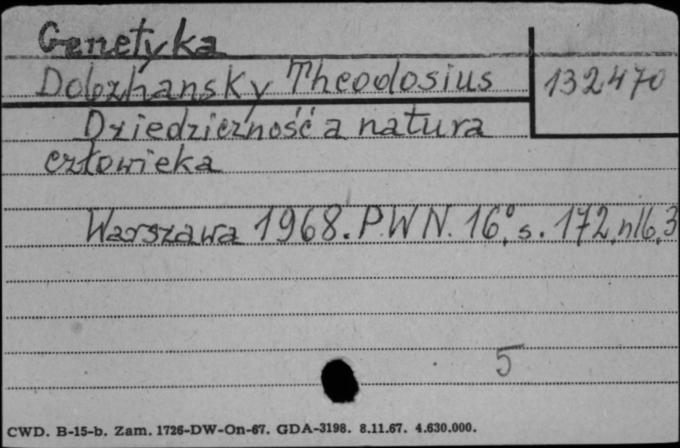 Genetyka
Dobzhansky Theodosius 132470
Dziedziczność a natura
człowieka
Warszawa 1968. P.W.N. 16°, s. 172, nlb, 3
5
CWD. B-15-b. Zam. 1726-DW-On-67. GDA-3198. 8.11.67. 4.630.000.